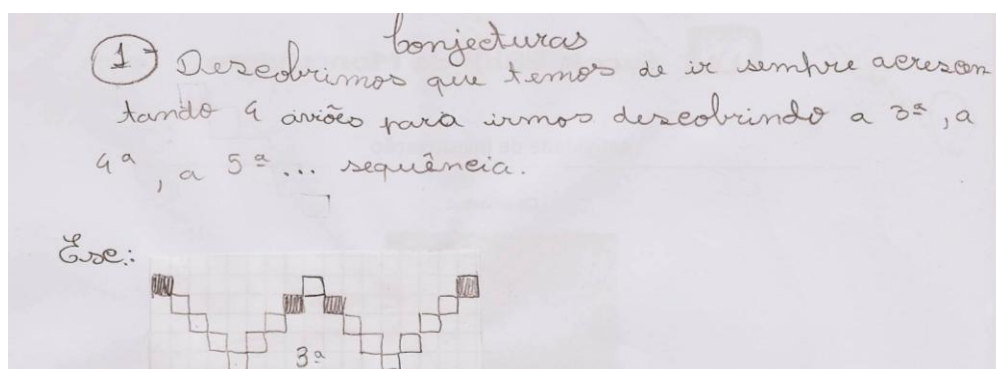 Conjecturas
1 Descobrimos que temos de ir sempre acrescen
tando 4 aviões para irmos descobrindo a 3ª, a
4ª, a 5ª... sequência.
Ex:
3ª